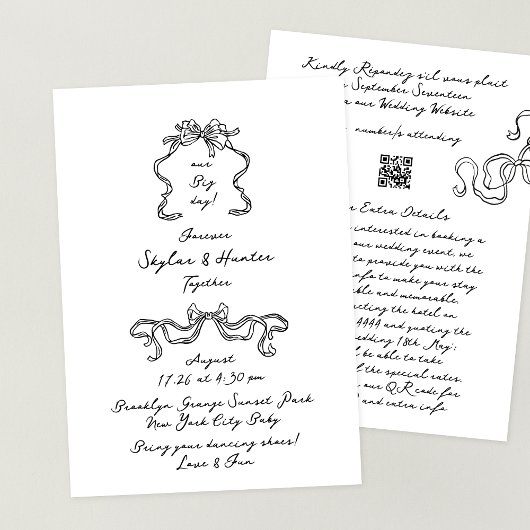 our
Big
day!
Forever
Skylar & Hunter
Together
August
17.26 at 4:30 pm
Brooklyn Grange Sunset Park
New York City Baby
Bring your dancing shoes!
Love & Fun
Kindly Répondez s'il vous plait
September Seventeen
our Wedding Website
number/s attending
Extra Details
interested in booking a
our wedding event, we
to provide you with the
info to make your stay
and memorable.
the hotel on
4444 and quoting the
wedding 18th May:
be able to take
the special rates.
our QR code for
and extra info